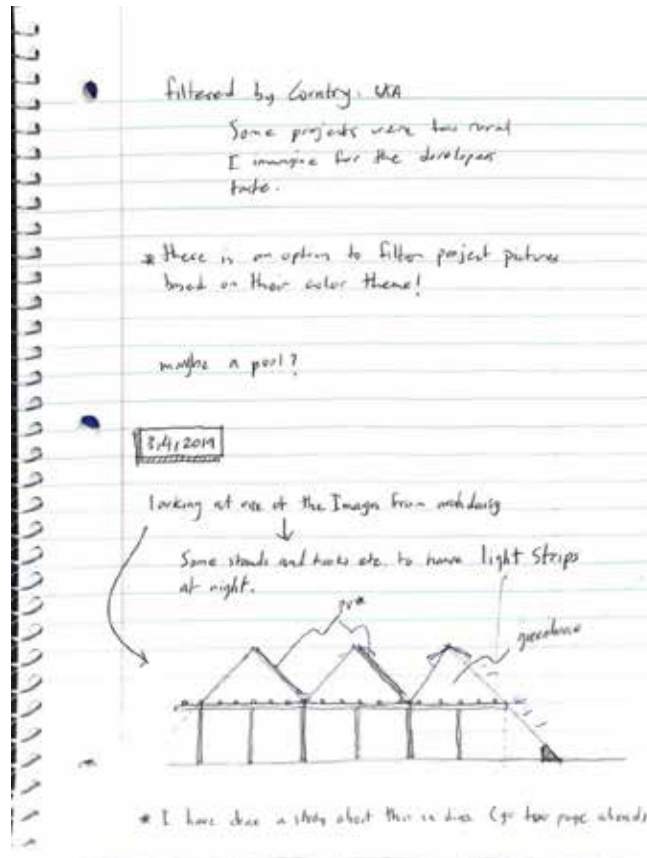 filtered by Country. USA
Some projects were too rural
I imagine for the developers
taste.
* there is an option to filter project pictures
based on their color theme!
maybe a pool?
3,4,2019
looking at one of the Images from archdaily
Some stands and hooks etc. to have light strips
at night.
PV*
greenhouse
* I have done a study about this in (go two page aheads